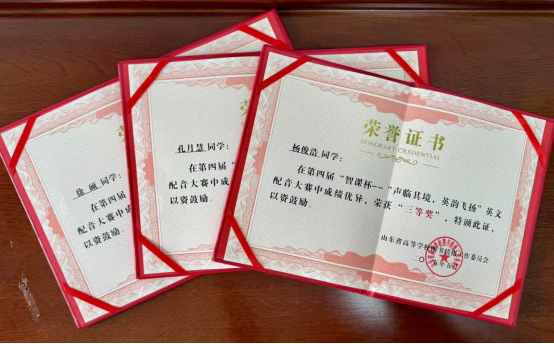 徐硕 同学:
在第四届
配音大赛中成
以资鼓励。
孔月慧 同学:
在第四届“
配音大赛中成
以资鼓励。
荣誉证书
HONORARY CREDENTIAL
杨俊浩 同学:
在第四届“智课杯--“声临其境,英韵飞扬”英文
配音大赛中成绩优异,荣获“三等奖”,特颁此证,
以资鼓励。
山东省高等学校 作委员会
二〇 五年五月